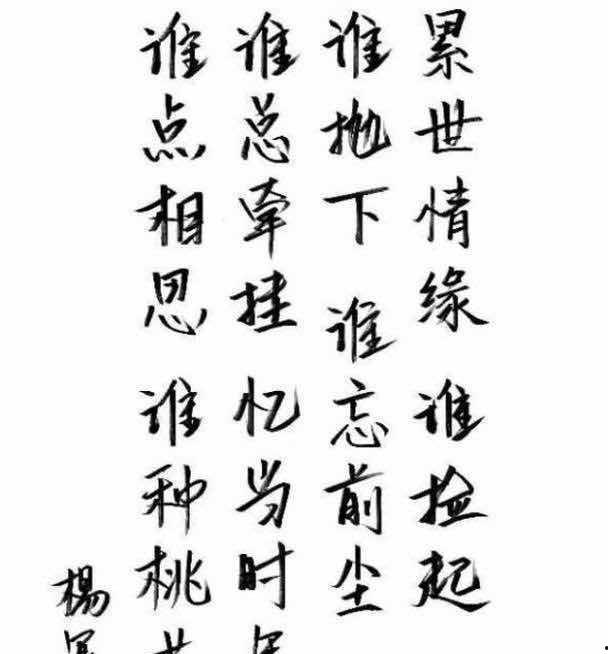 累世情缘 谁捡起
谁抛下 谁忘前尘
谁总牵挂 忆当时
谁点相思 谁种桃
楊